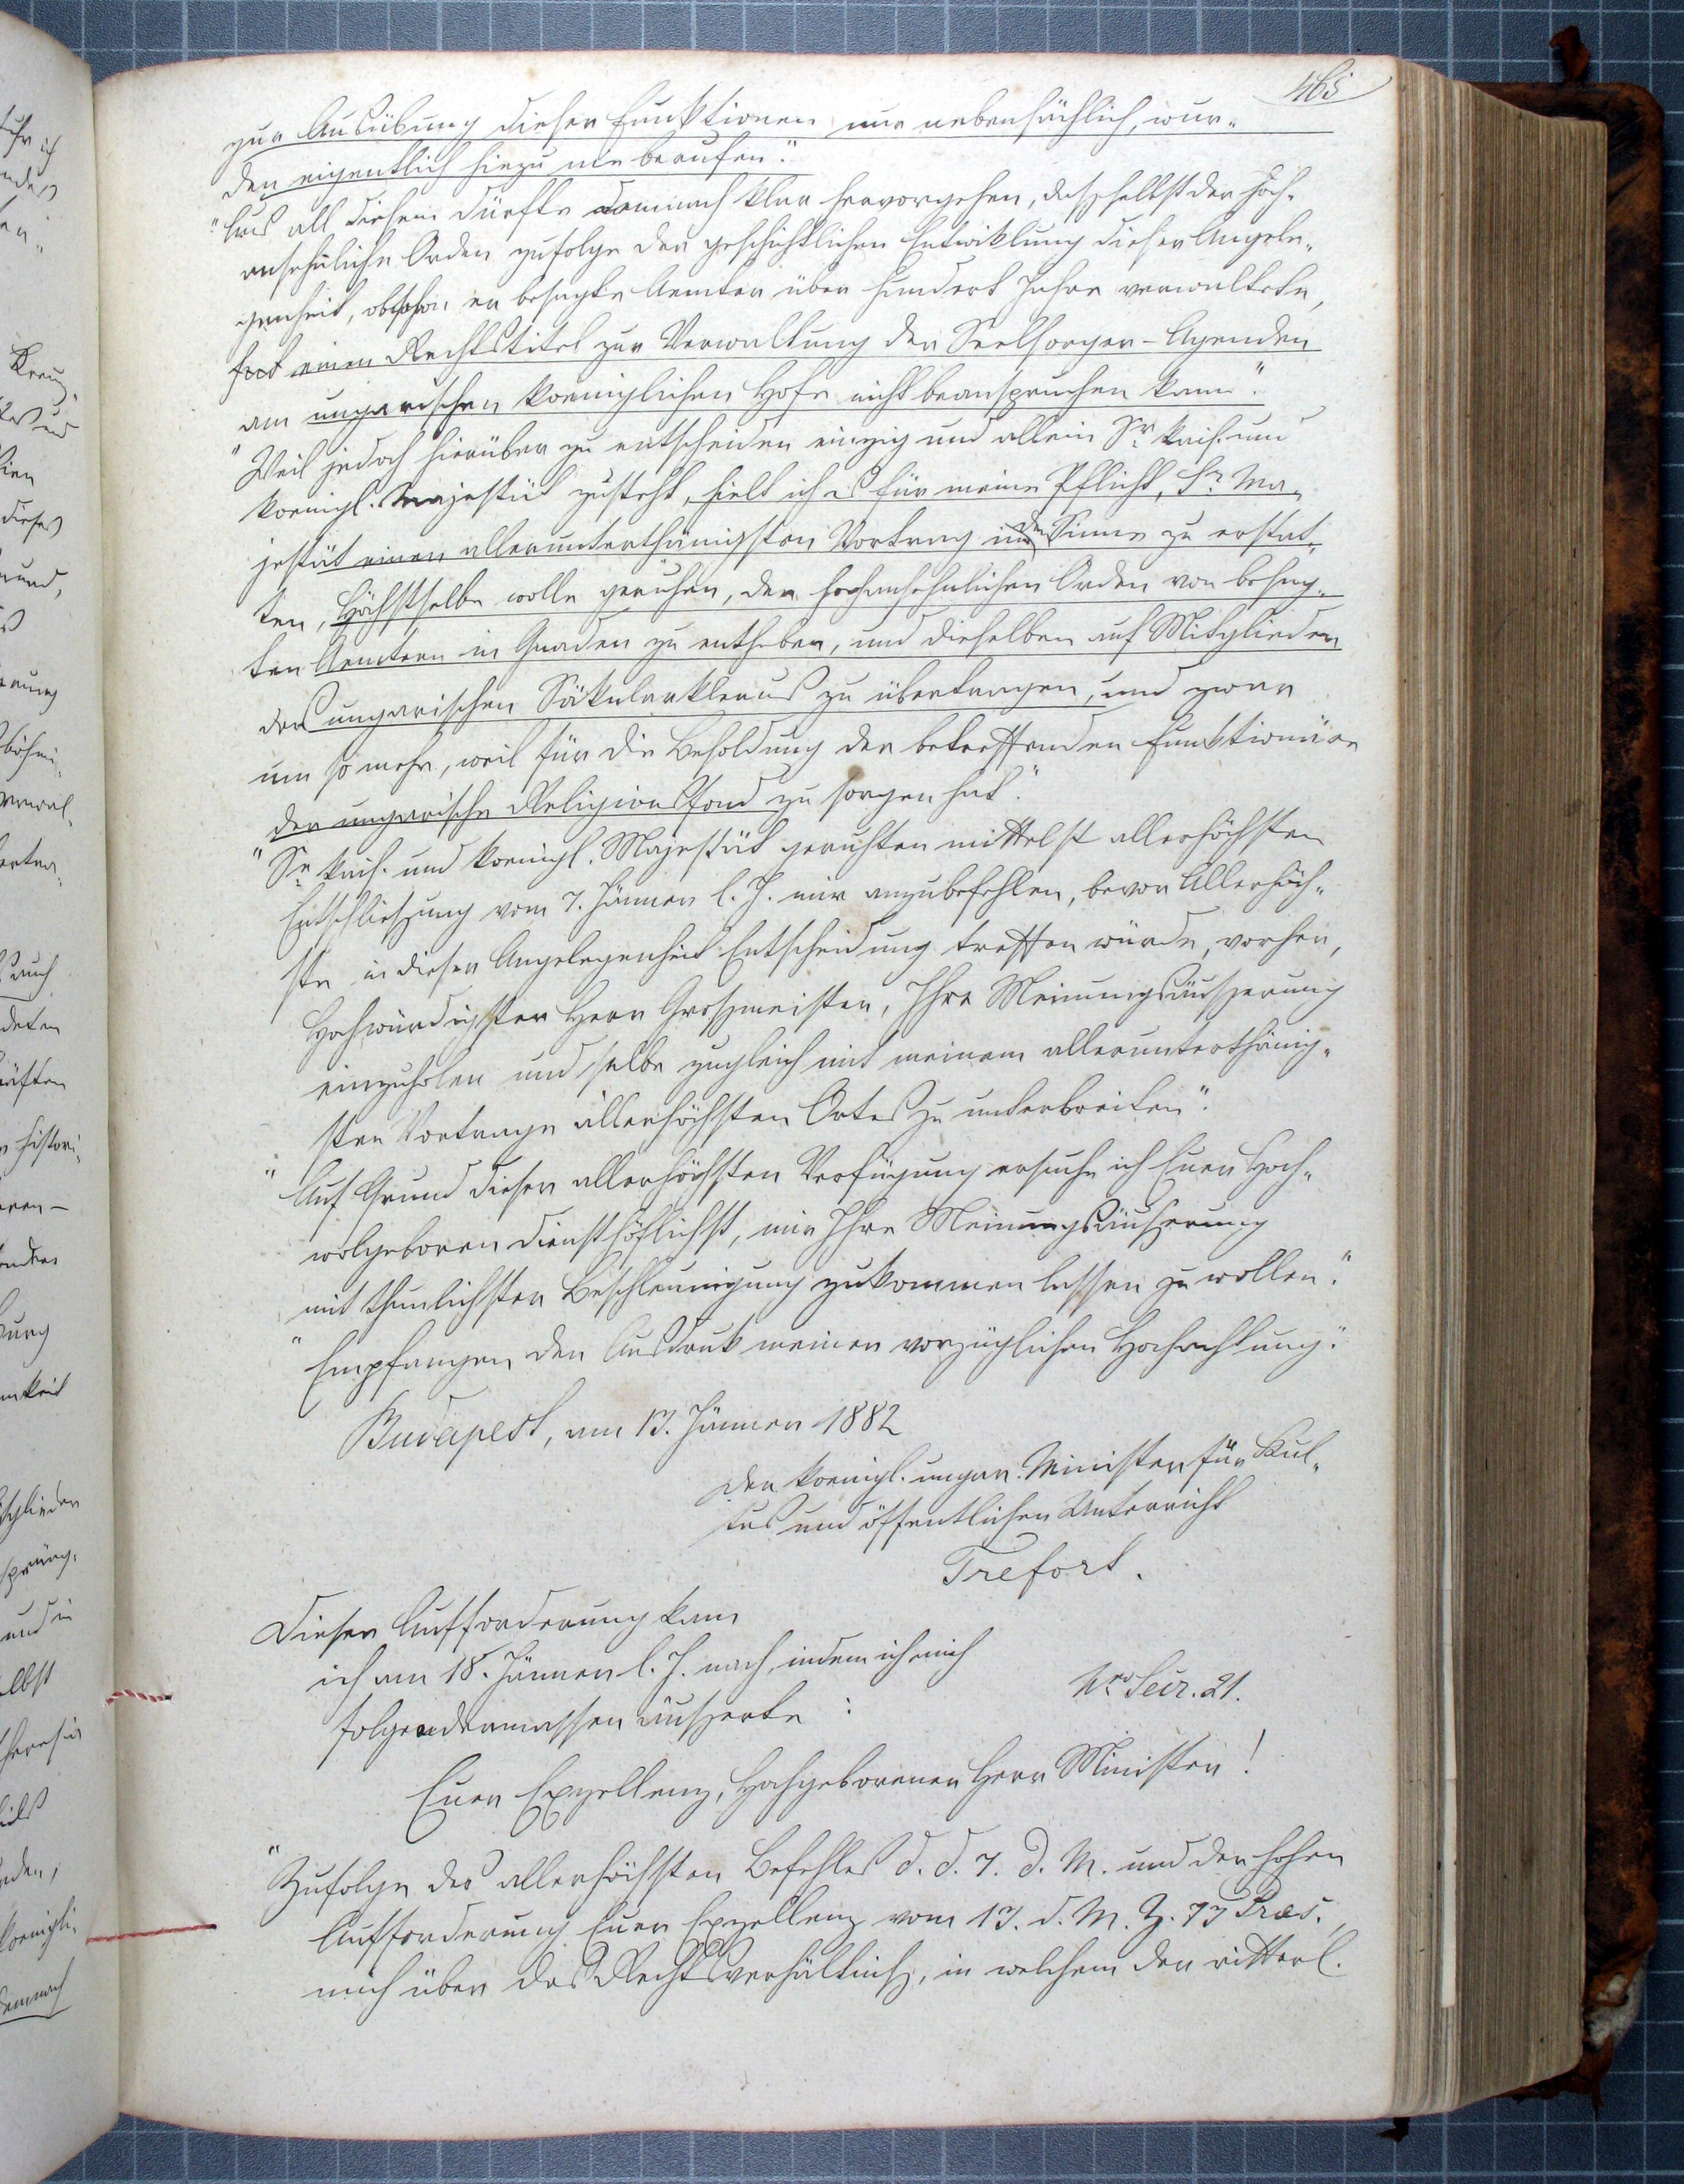 465
zur Ausübung dieser Funktionen nur nebensächlich, wur„
den eigentlich hiezu nie berufen."
"Aus all diesem dürfte demnach klar hervorgehen, daß selbst der hoch„
ansehnliche Orden zufolge der geschichtlichen Entwiklung dieser Angele„
genheit, obschon er besagte Aemter über hundert Jahre verwaltete,
einen Rechtstitel zur Verwaltung der Seelsorger-Agenden
am ungarischen koeniglichen Hofe nicht beanspruchen kann."
"Weil jedoch hierüber zu entscheiden einzig und allein Sr kais. und
koenigl. Majestät zusteht, hielt ich es für meine Pflicht, Sr Ma„
jestät einen allerunterthänigsten Vortrag in dem Sinne zu erstat„
ten, Höchstselbe wolle geruhen, den hochansehnlichen Orden von besag„
ten Aemtern in Gnaden zu entheben, und dieselben auf Mitglieder
des ungarischen Säkularklerus zu übertragen, und zwar
um so mehr, weil für die Besoldung der betreffenden Funktionäre
der ungarische Religionsfond zu sorgen hat."
"Se kais. und koenigl. Majestät geruhten mittelst allerhöchster
Entschließung vom 7. Jänner l. J. mir anzubefehlen, bevor Allerhöch„
ste in dieser Angelegenheit Entscheidung treffen würde, vorher,
Hochwürdigster Herr Großmeister, Ihre Meinungsäußerung
einzuholen und selbe zugleich mit meinem allerunterthänig„
sten Vortrage allerhöchsten Ortes zu unterbreiten."
"Auf Grund dieser allerhöchsten Verfügung ersuche ich Euer Hoch„
wolgeboren diensthöflichst, mir Ihre Meinungsäußerung
mit thunlichster Beschleunigung zukommen lassen zu wollen."
"Empfangen den Ausdruk meiner vorzüglichen Hochachtung."
Budapest, am 13. Jänner 1882
Der koenigl. ungar. Minister für Kul„
tus und öffentlichen Unterricht
Trefort.
Dieser Aufforderung kam
ich am 18. Jänner l. J. nach, indem ich mich
folgendermassen äußerte:
Nro 21.
Euer Exzellenz, Hochgeborener Herr Minister!
"Zufolge des allerhöchsten Befehles d. d. 7. d. M. und der hohen
Aufforderung Euer Exzellenz vom 13. d. M. Z. 77 Præs.,
mich über das Rechtsverhältniß, in welchem der ritterl.